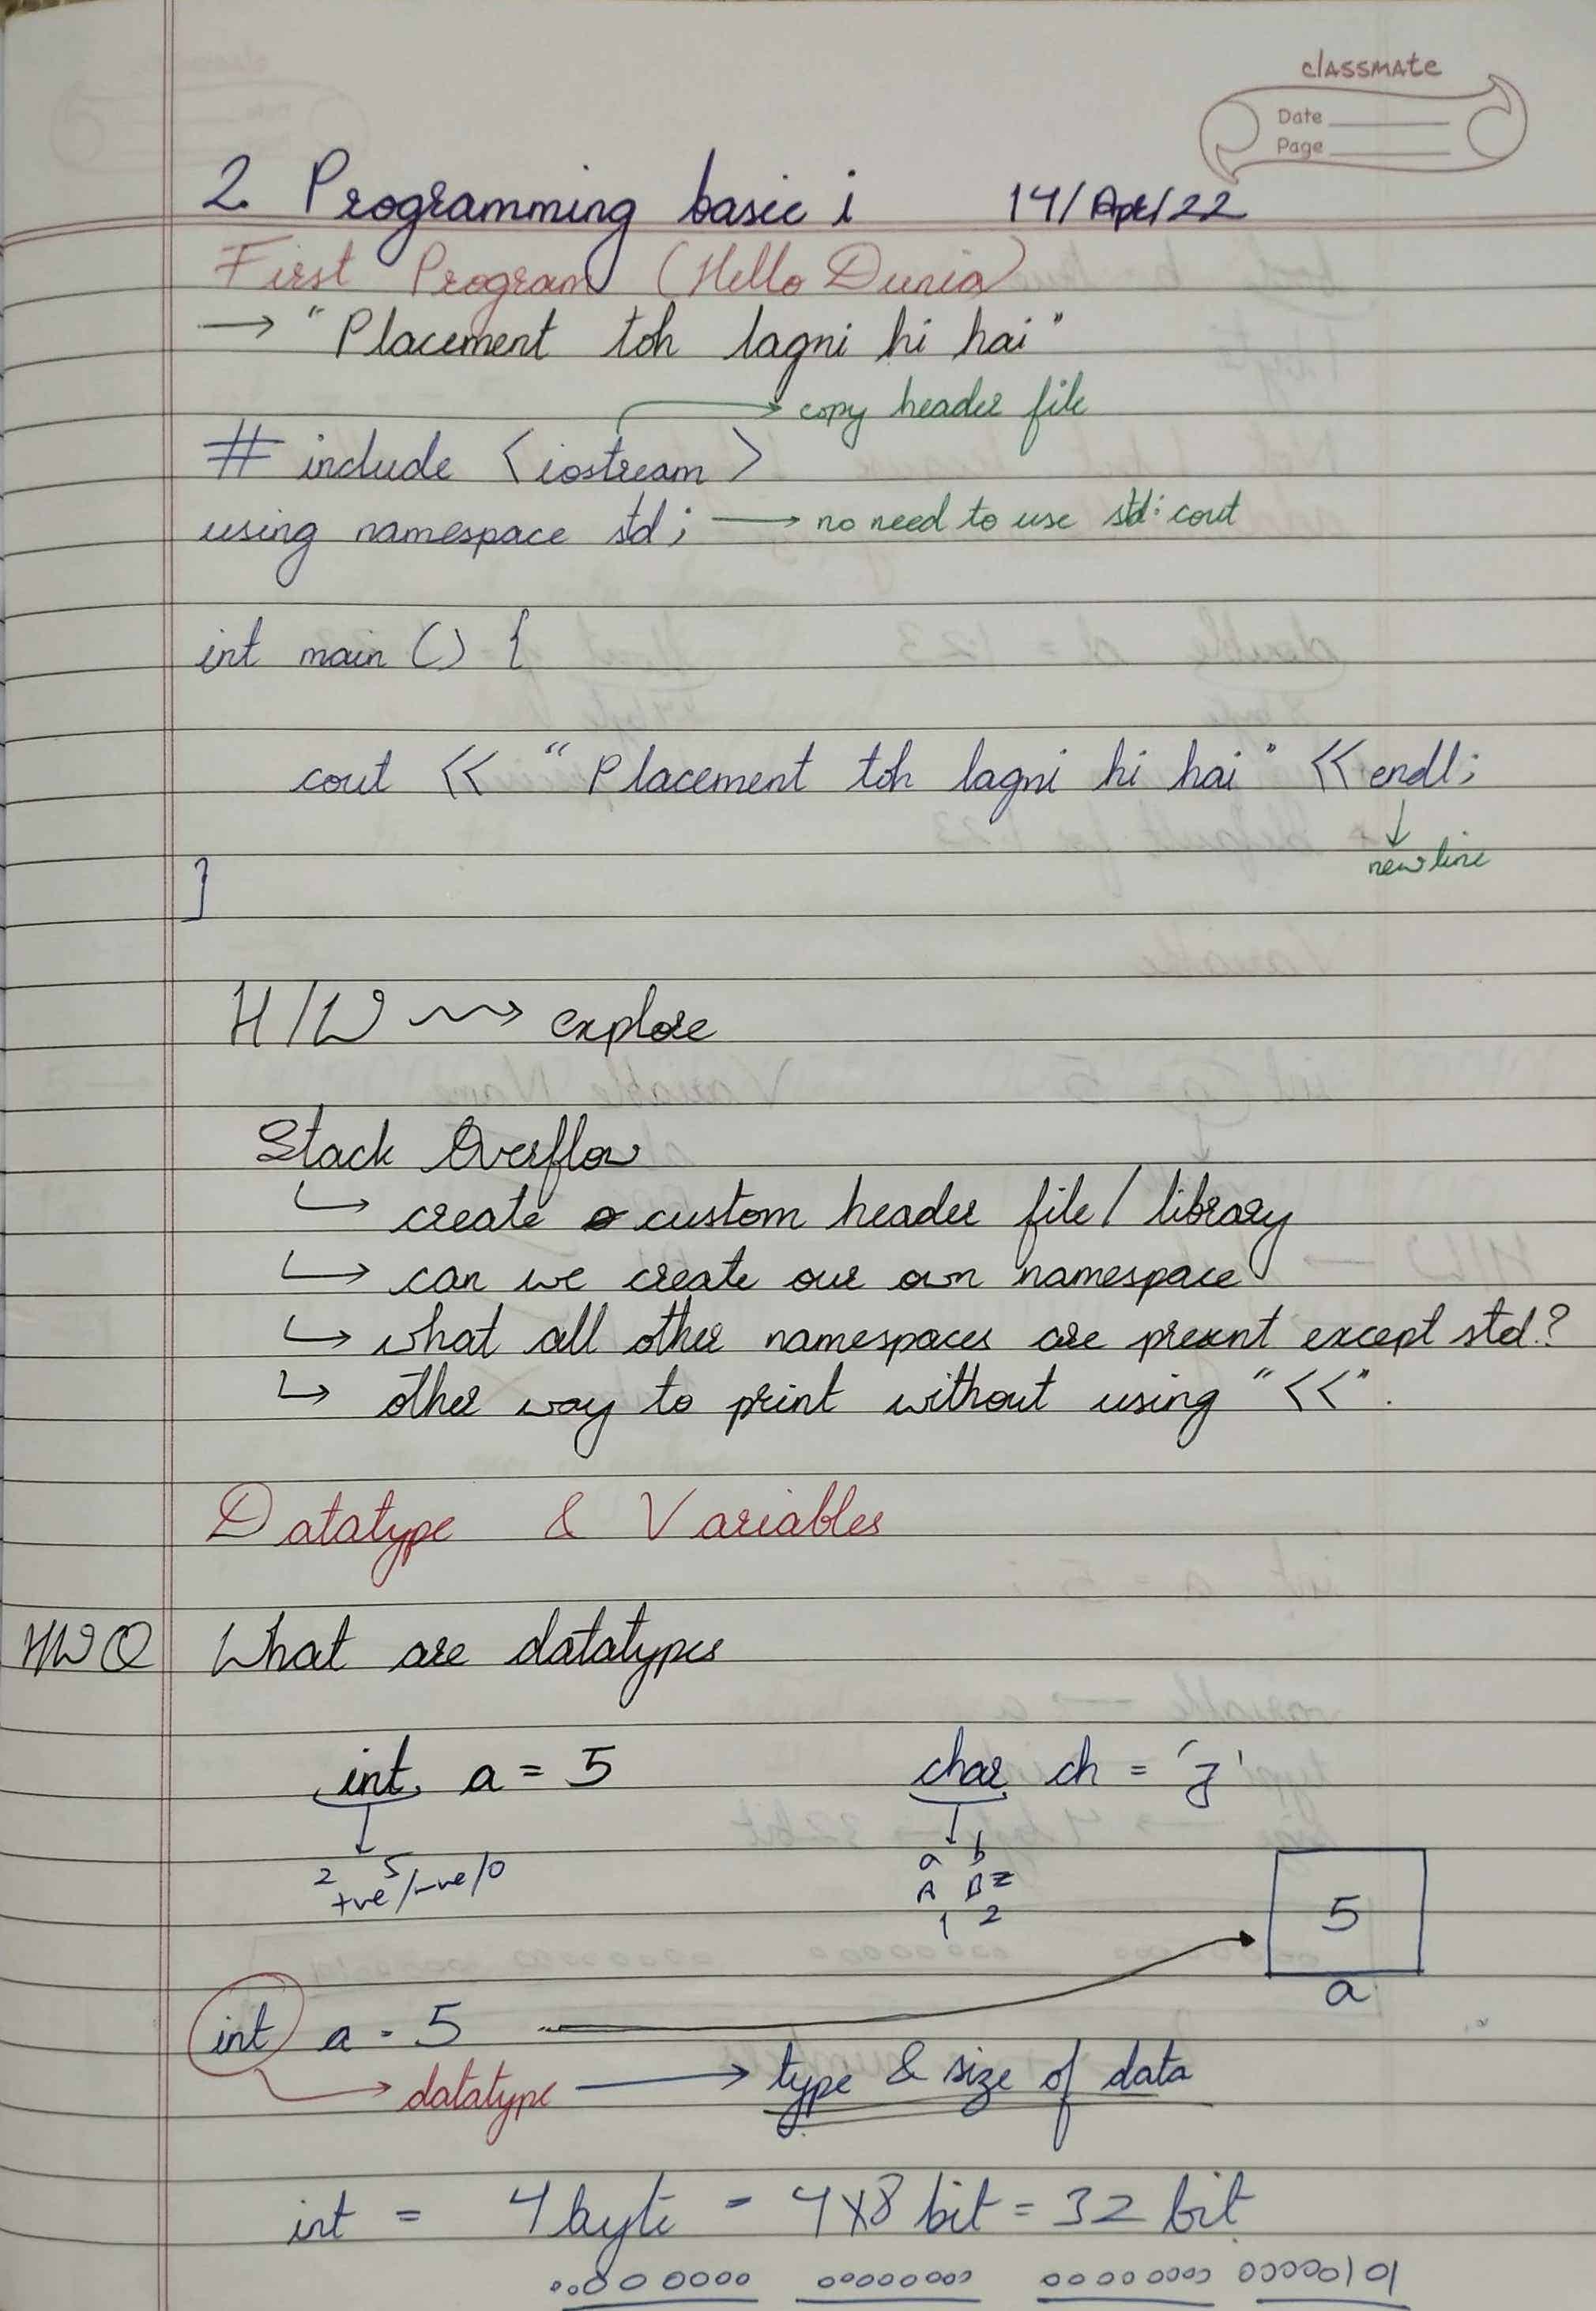 classmate
Date
Page
2. Programming basic i 14/Apr/22
First Program (Hello Dunia)
→ "Placement toh lagni hi hai"
→ copy header file
# include <iostream>
using namespace std; → no need to use std:cout
int main () {
cout << "Placement toh lagni hi hai" << endl;
↓
new line
}
H/W ⇝ explore
Stack Overflow
↳ create custom header file / library
↳ can we create our own namespace
↳ what all other namespaces are present except std.?
↳ other way to print without using "<<".
Datatype & Variables
HWQ What are datatypes
int a = 5 char ch = 'z'
2 5 a b
+ve/-ve/0 A B z
1 2
5
a
int a = 5
→ datatype → type & size of data
int = 4 byte - 4x8 bit = 32 bit
00000000 00000000 00000000 00000101